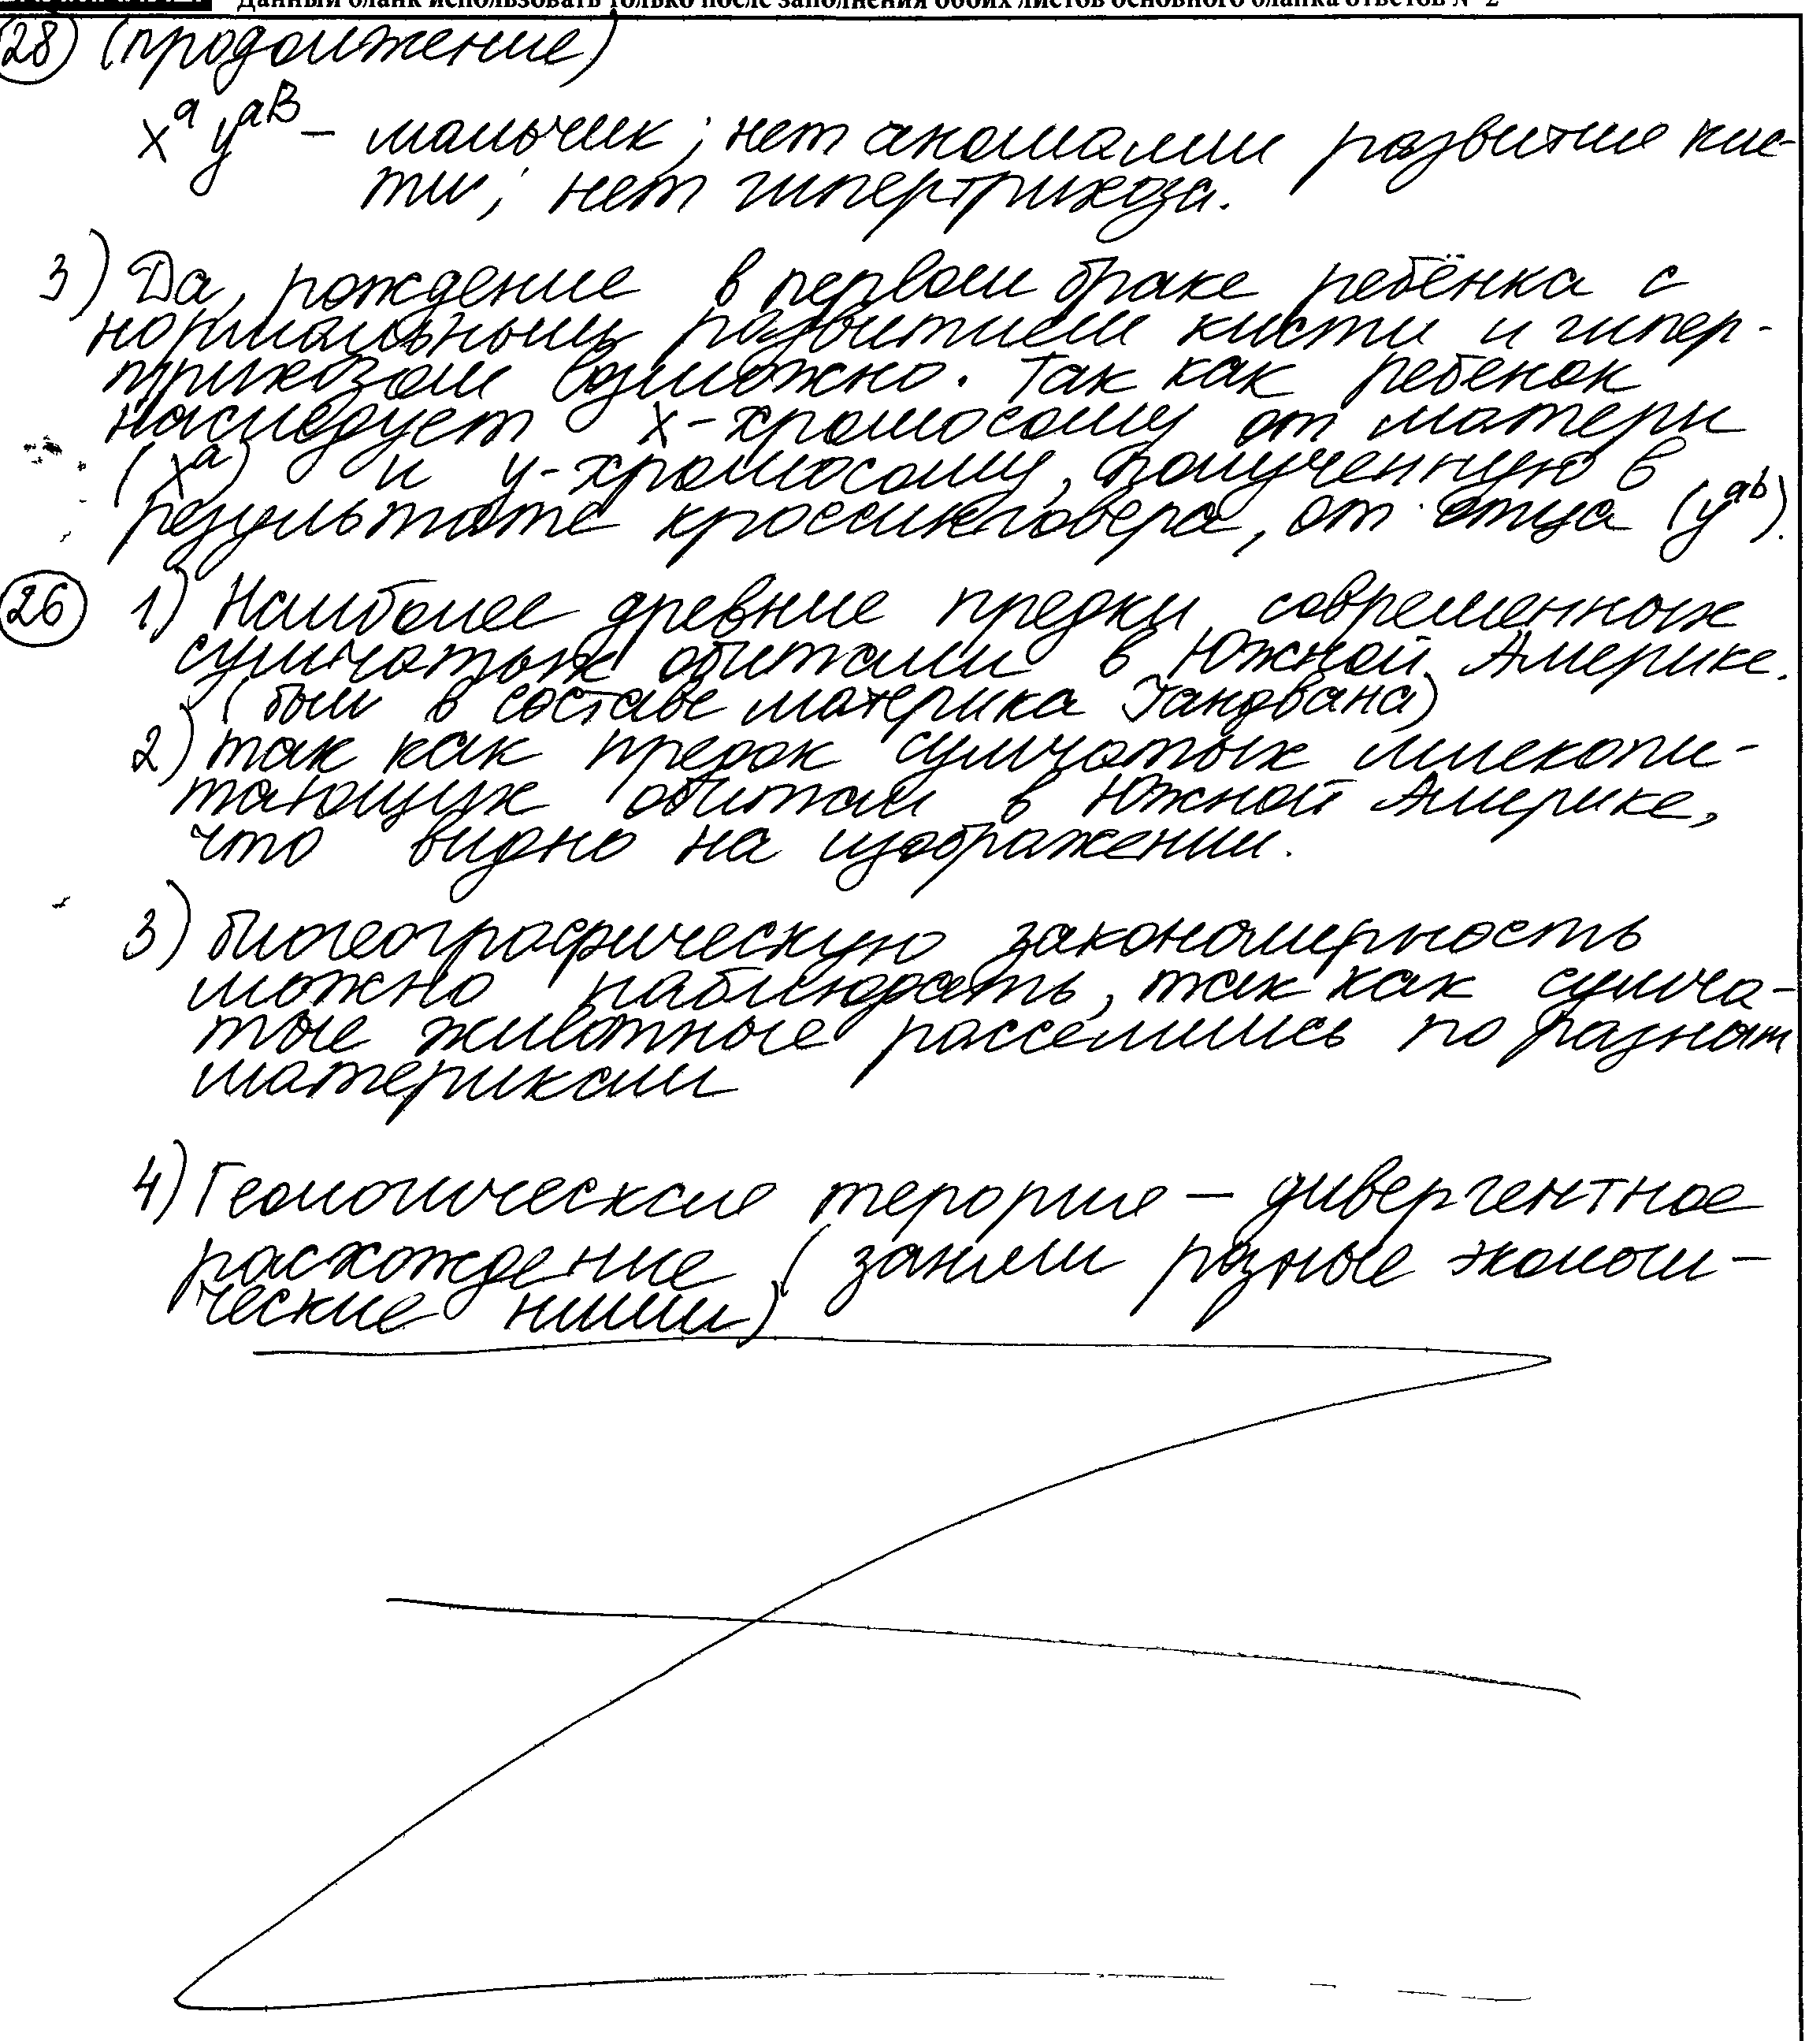 Данный бланк использовать только после заполнения обоих листов основного бланка ответов № 2
28 (продолжение)
xᵃ yᵃᴮ – мальчик; нет аномалии развитие кис-
ти; нет гипертрихоза.
3) Да, рождение в первом браке ребёнка с
нормальным развитием кисти и гипер-
трихозом возможно. Так как ребенок
наследует х-хромосому от матери
(xᵃ) и у-хромосому, полученную в
результате кроссинговера, от отца (yᵃᵇ).
26 1) Наиболее древние предки современных
сумчатых обитали в Южной Америке.
(был в составе материка Гандвана)
2) так как предок сумчатых млекопи-
тающих обитал в Южной Америке,
что видно на изображении.
3) биогеографическую закономерность
можно наблюдать, так как сумча-
тые животные расселились по разным
материкам
4) Геологические терории – дивергентное
расхождение (заняли разные экологи-
ческие ниши)